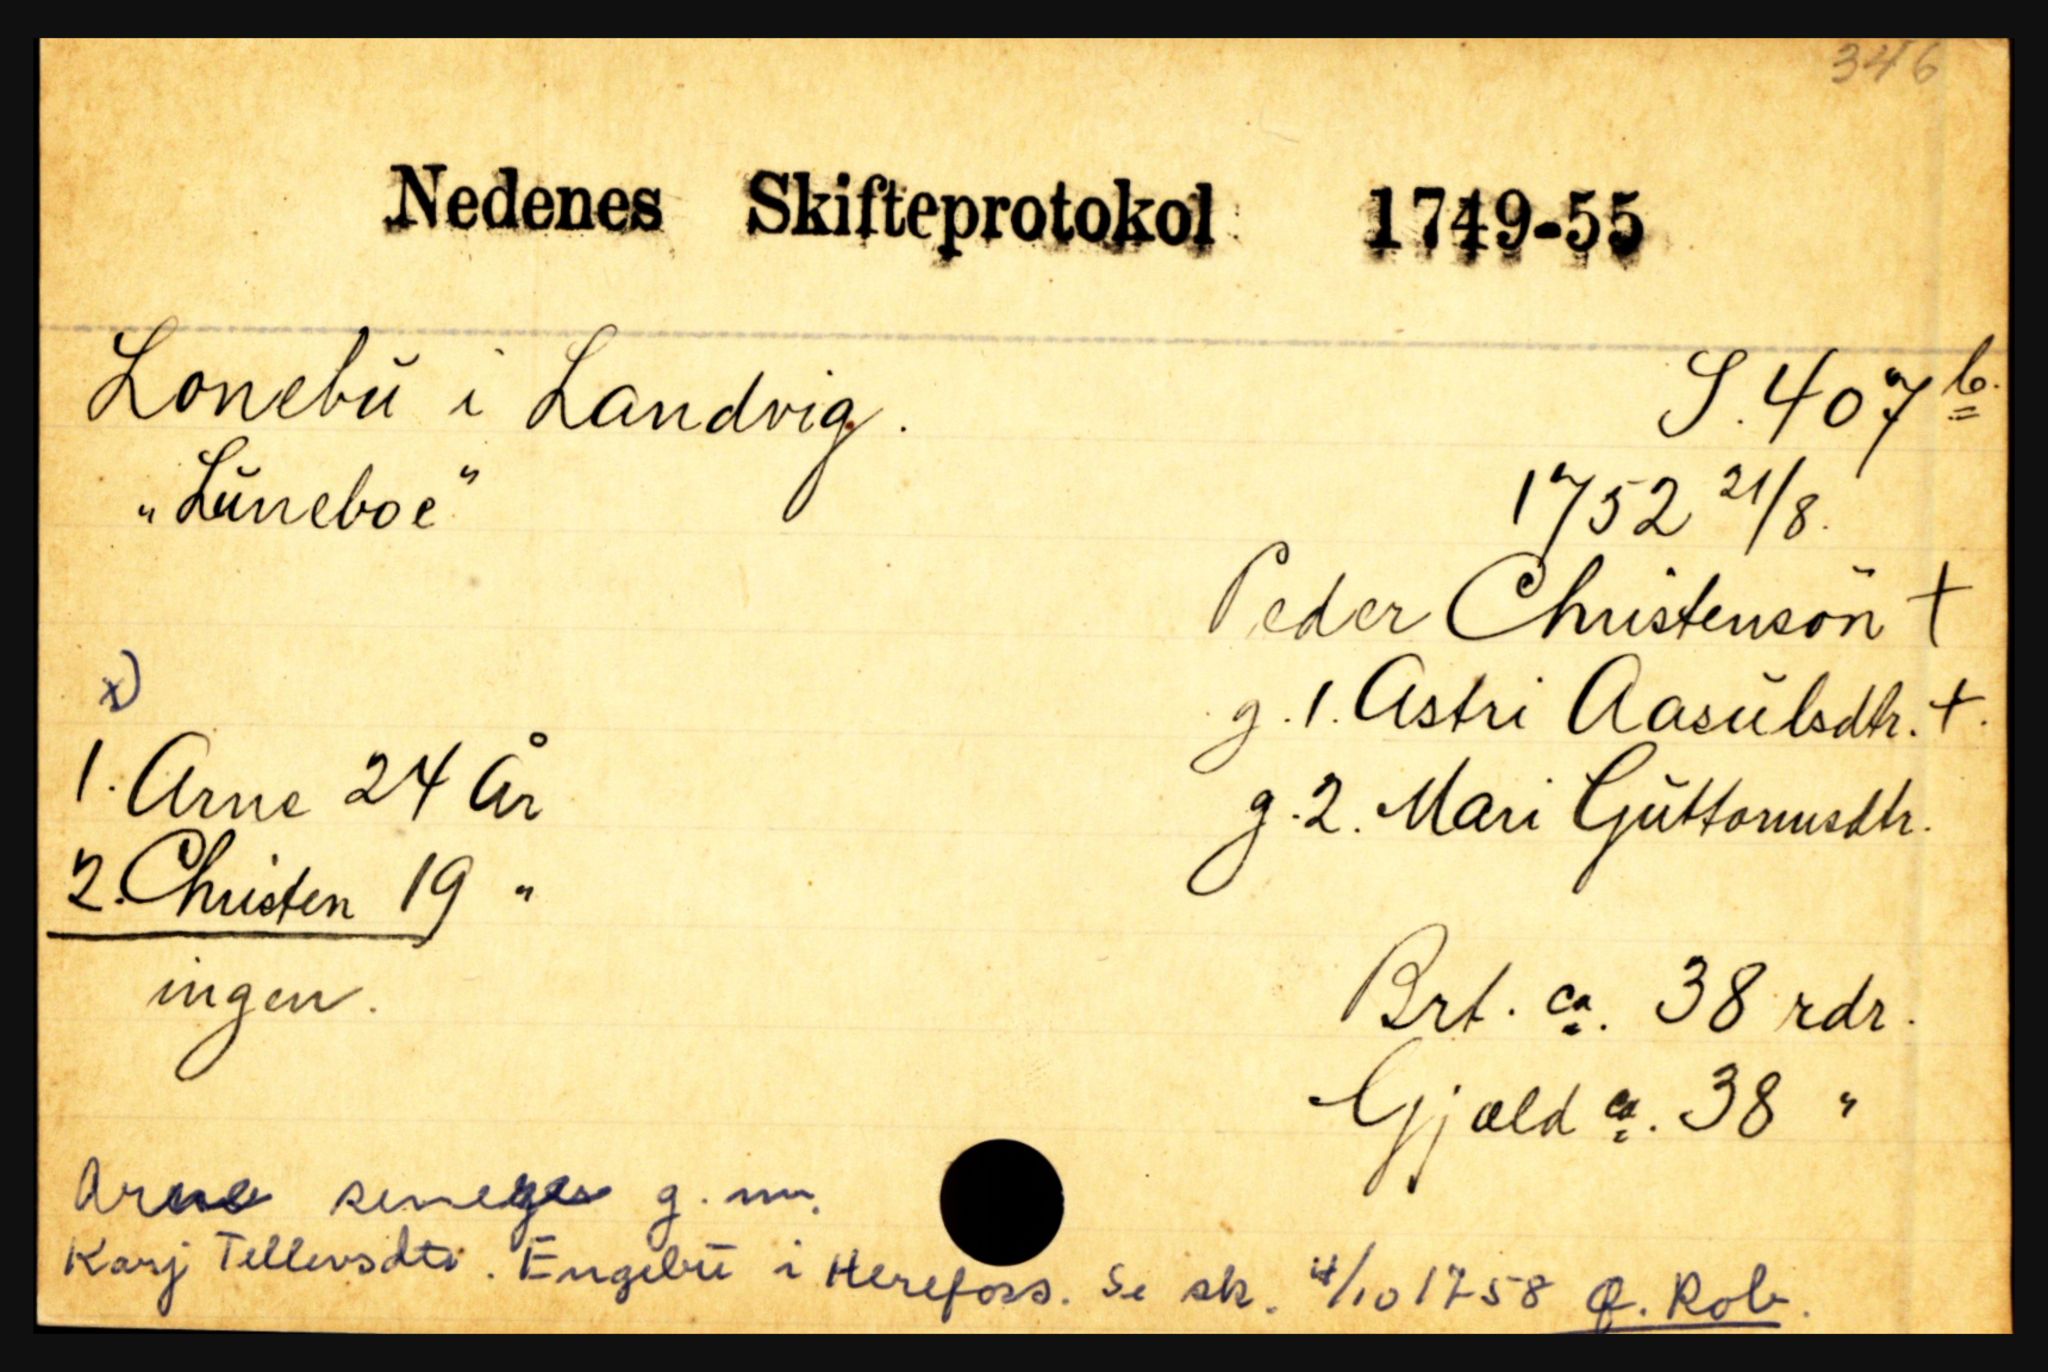 346
Nedenes Skifteprotokol 1749-55
Lonebŭ i Landvig. S. 407 b.
"Lŭneboe" 1752 21/8.
Peder Christensön +
x) g. 1. Astri Aasŭlsdtr. +.
1. Arne 24 År g. 2. Mari Gŭttormsdtr.
2. Christen 19 "
ingen. Brt. ca. 38 rdr.
Gjæld ca. 38 "
Arne senere g. m.
Karj Tellevsdtr. Engebŭ i Herefoss. Se sk. /10 1758 Q. Rob.